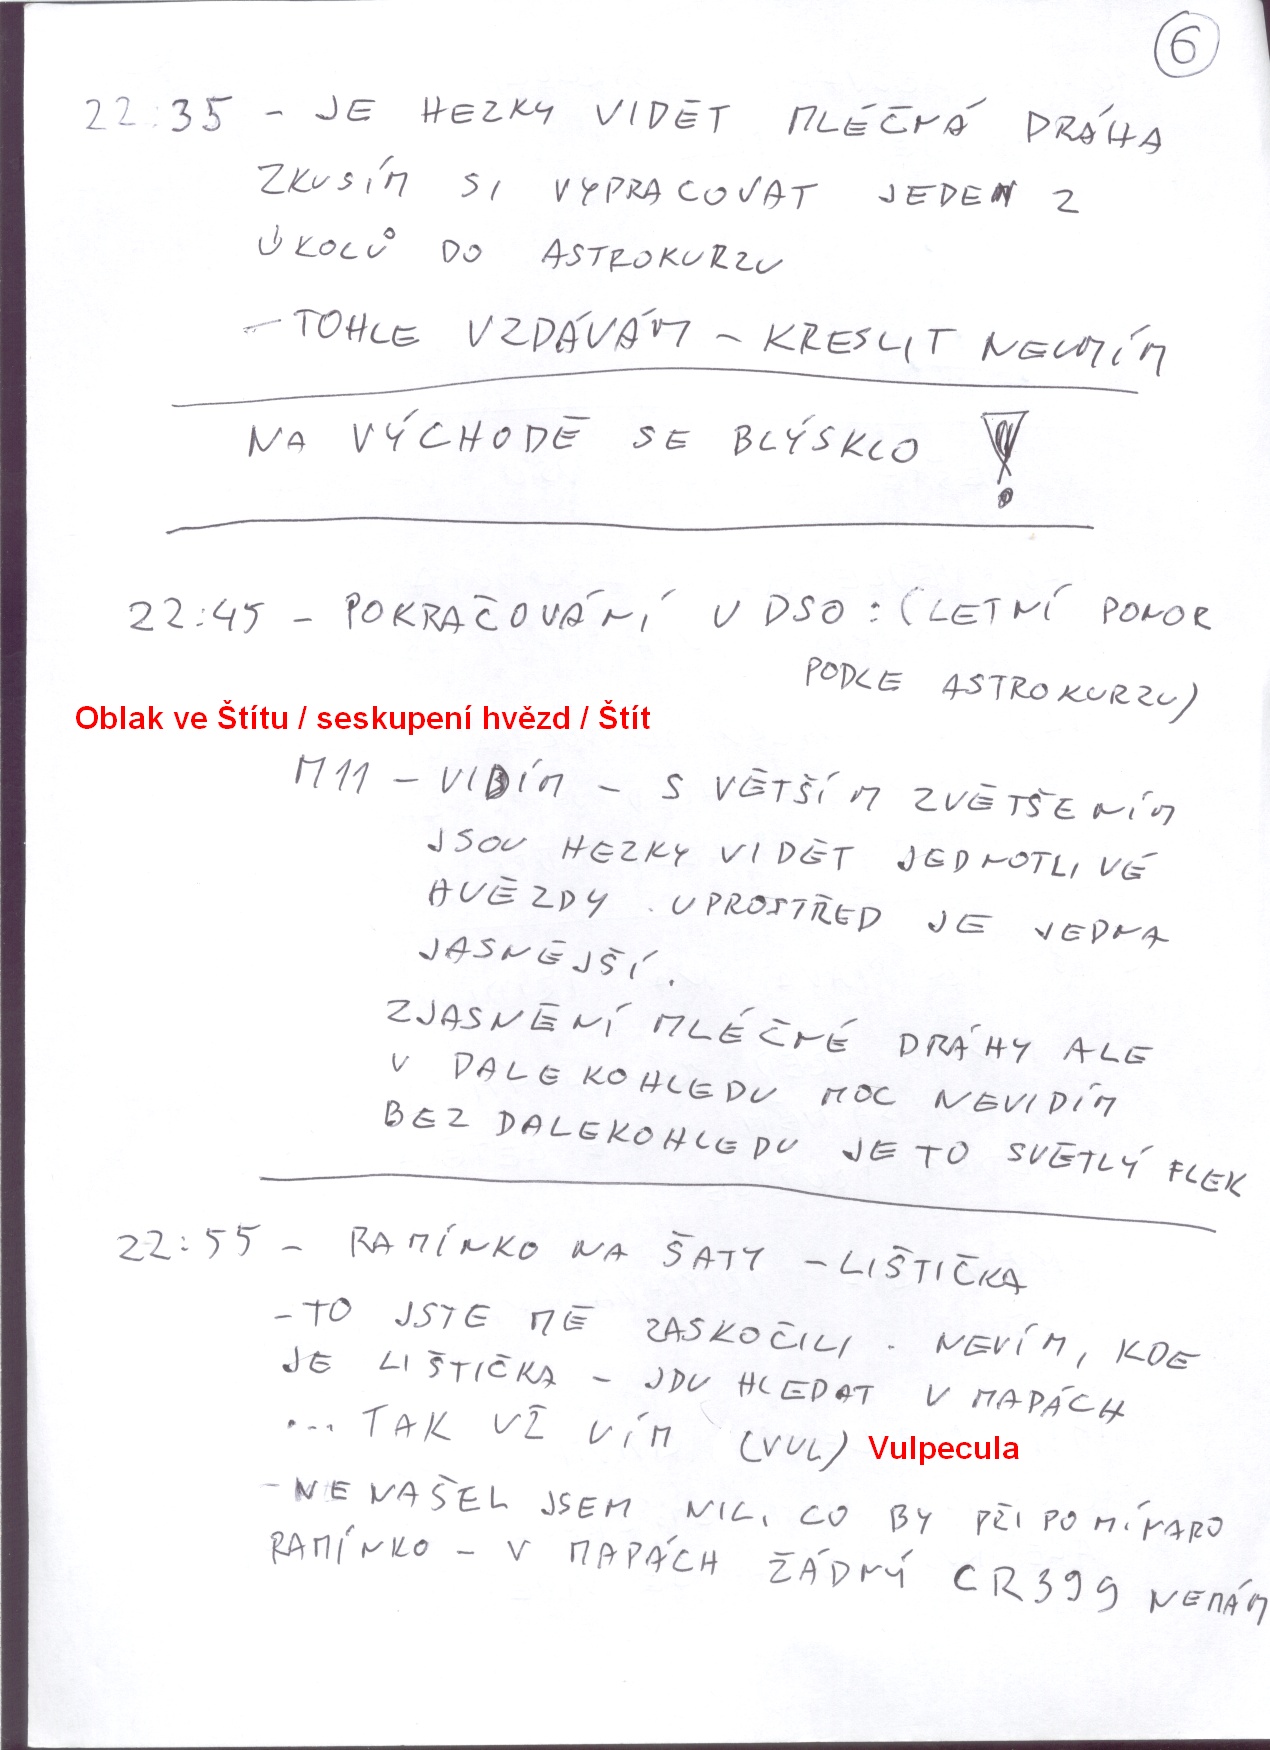 6
22:35 - JE HEZKY VIDĚT MLÉČNÁ DRÁHA
ZKUSÍM SI VYPRACOVAT JEDEN Z
ÚKOLŮ DO ASTROKURZU
- TOHLE VZDÁVÁM - KRESLIT NEUMÍM
NA VÝCHODĚ SE BLÝSKLO !
22:45 - POKRAČOVÁNÍ U DSO: (LETNÍ PONOR
PODLE ASTROKURZU)
Oblak ve Štítu / seskupení hvězd / Štít
M11 - VIDÍM - S VĚTŠÍM ZVĚTŠENÍM
JSOU HEZKY VIDĚT JEDNOTLIVÉ
HVĚZDY. UPROSTŘED JE JEDNA
JASNĚJŠÍ.
ZJASNĚNÍ MLÉČNÉ DRÁHY ALE
V DALEKOHLEDU MOC NEVIDÍM
BEZ DALEKOHLEDU JE TO SVĚTLÝ FLEK
22:55 - RAMÍNKO NA ŠATY - LIŠTIČKA
- TO JSTE MĚ ZASKOČILI. NEVÍM, KDE
JE LIŠTIČKA - JDU HLEDAT V MAPÁCH
... TAK UŽ VÍM (VUL) Vulpecula
- NENAŠEL JSEM NIC, CO BY PŘIPOMÍNALO
RAMÍNKO - V MAPÁCH ŽÁDNÝ CR399 NEMÁM